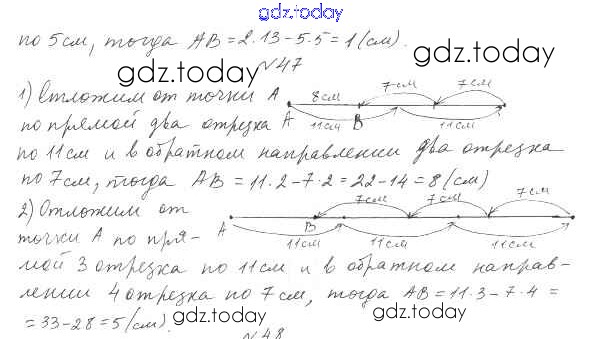 gdz.today
по 5 см, тогда AB = 2·13 − 5·5 = 1 (см).
gdz.today
№47
gdz.today
1) Отложим от точки A
8 см 7 см 7 см
A B
11 см 11 см
по прямой два отрезка
по 11 см и в обратном направлении два отрезка
по 7 см, тогда AB = 11·2 − 7·2 = 22 − 14 = 8 (см)
2) Отложим от
7 см 7 см 7 см
A B
11 см 11 см 11 см
точки A по пря-
мой 3 отрезка по 11 см и в обратном направ-
лении 4 отрезка по 7 см, тогда AB = 11·3 − 7·4 =
= 33 − 28 = 5 (см).
gdz.today
gdz.today
№48